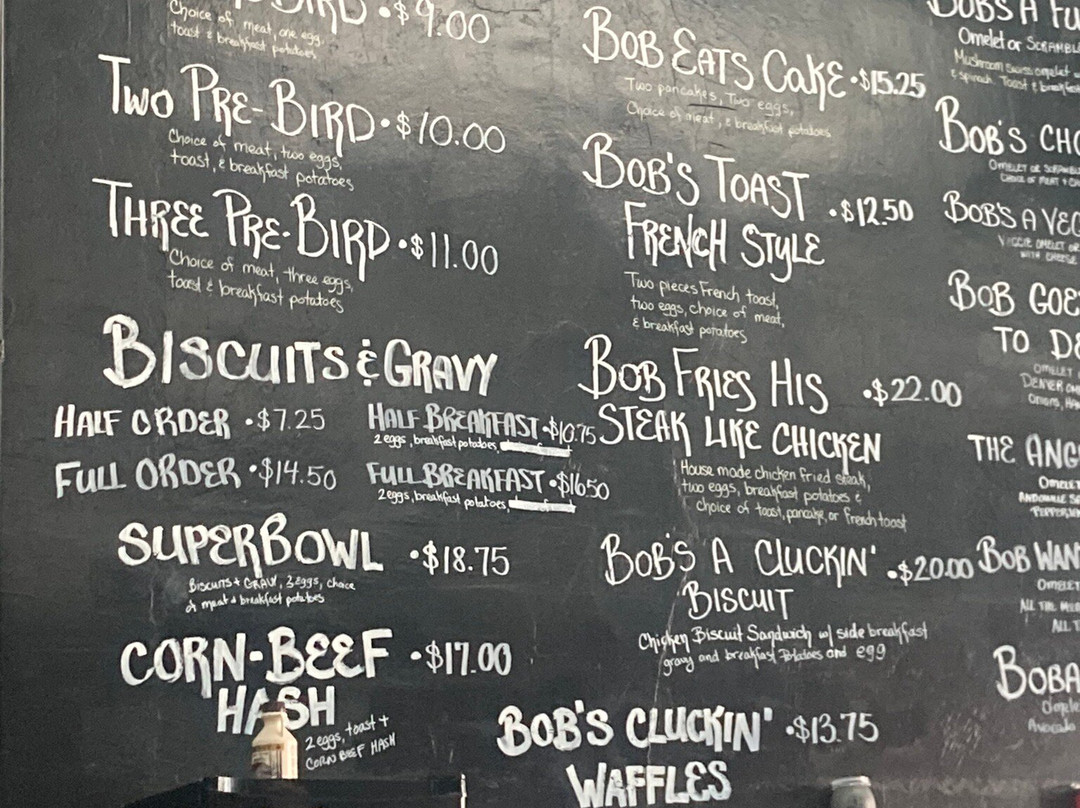 BIRD • $9.00
Choice of meat, one egg,
toast & breakfast potatoes
TWO PRE-BIRD • $10.00
Choice of meat, two eggs,
toast, & breakfast potatoes
THREE PRE-BIRD • $11.00
Choice of meat, three eggs,
toast & breakfast potatoes
BISCUITS & GRAVY
HALF ORDER • $7.25
FULL ORDER • $14.50
HALF BREAKFAST • $10.75
2 eggs, breakfast potatoes,
FULL BREAKFAST • $16.50
2 eggs, breakfast potatoes,
SUPERBOWL • $18.75
BISCUITS + GRAVY, 3 eggs, choice
of meat & breakfast potatoes
CORN-BEEF • $17.00
HASH
2 eggs, toast +
CORN BEEF HASH
BOB EATS CAKE • $15.25
Two pancakes, Two eggs,
Choice of meat, & breakfast potatoes
BOB'S TOAST
FRENCH STYLE • $12.50
Two pieces French toast,
two eggs, choice of meat,
& breakfast potatoes
BOB FRIES HIS • $22.00
STEAK LIKE CHICKEN
House made chicken fried steak,
two eggs, breakfast potatoes &
choice of toast, pancake, or french toast
BOB'S A CLUCKIN' • $20.00
BISCUIT
Chicken Biscuit Sandwich w/ side breakfast
gravy and breakfast Potatoes and egg
BOB'S CLUCKIN' • $13.75
WAFFLES
BOB'S A FU
Omelet or SCRAMBL
Mushroom Swiss omelet
& spinach. Toast & breakfast
BOB'S CHO
OMELET OR SCRAMBL
CHOICE OF MEAT + CH
BOB'S A VEG
VEGGIE OMELET OR
WITH CHEESE
BOB GOE
TO DE
OMELET
DENVER OM
Onions, HA
THE ANG
OMELET
ANDOUILLE S
PEPPERJA
BOB WAN
OMELET
ALL THE ME
ALL T
BOBA
Omele
Avocado